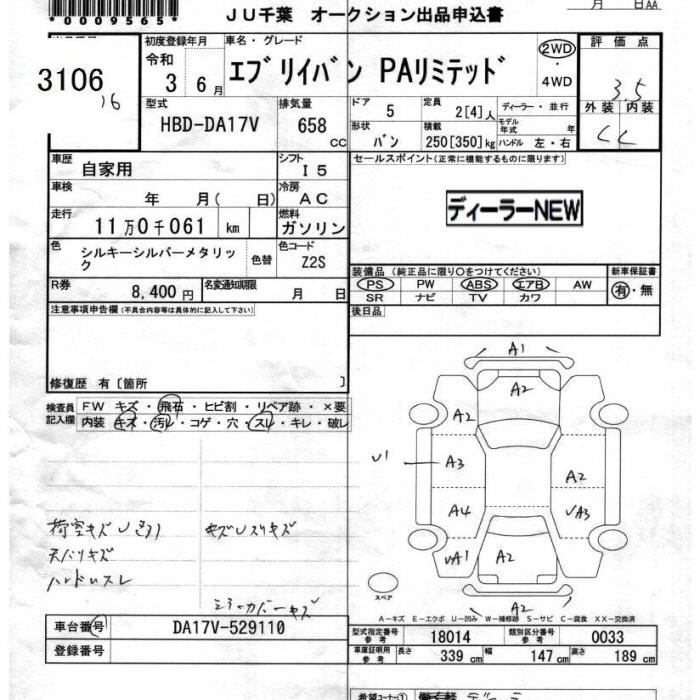 *0009565*
月 日AA
JU千葉 オークション出品申込書
3106
16
初度登録年月
令和 3 6月
車名・グレード
エブリイバン PAリミテッド
2WD
4WD
評価点
3.5
外装 内装
C C
型式
HBD-DA17V
排気量
658 cc
ドア 5
定員 2[4]人
ディーラー・並行
モデル年式 年
形状 バン
積載 250[350]kg
ハンドル 左・右
車歴 自家用
シフト I5
セールスポイント(正常に機能するものに限ります)
車検 年 月( 日)
冷房 AC
ディーラーNEW
走行 11万0千061 km
燃料 ガソリン
色 シルキーシルバーメタリック
色替
色コード Z2S
装備品(純正品に限り〇をつけてください)
新車保証書
PS PW ABS エアB AW
有・無
SR ナビ TV カワ
R券 8,400円
名変通知期限 月 日
後日品
注意事項申告欄(不具合内容等は具体的に記入して下さい)
修復歴 有〔箇所 〕
検査員記入欄
FW キズ・飛石・ヒビ割・リペア跡・×要
内装 キズ・汚レ・コゲ・穴・スレ・キレ・破レ
A1
A2
A2
U1
A3
A2
A4
UA3
UA1
A2
A2
スペア
キズUスリキズ
天バリキズ
ハンドルスレ
ミラーカバーキズ
A-キズ E-エクボ U-凹み W-補修跡 S-サビ C-腐食 XX-交換済
車台番号 DA17V-529110
登録番号
型式指定番号参考 18014
類別区分番号参考 0033
車庫証明用参考 長さ 339cm 幅 147cm 高さ 189cm
希望コーナー①